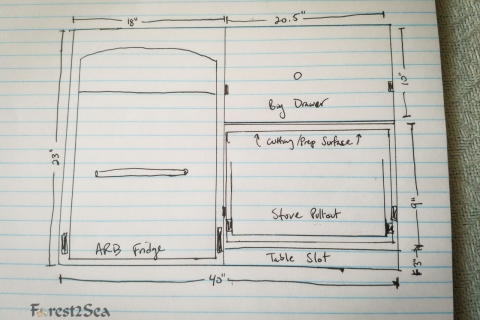 18"
20.5"
10"
Big Drawer
↑ Cutting/Prep Surface ↑
23"
9"
Stove Pullout
ARB Fridge
Table Slot
3"
40"
Forest2Sea